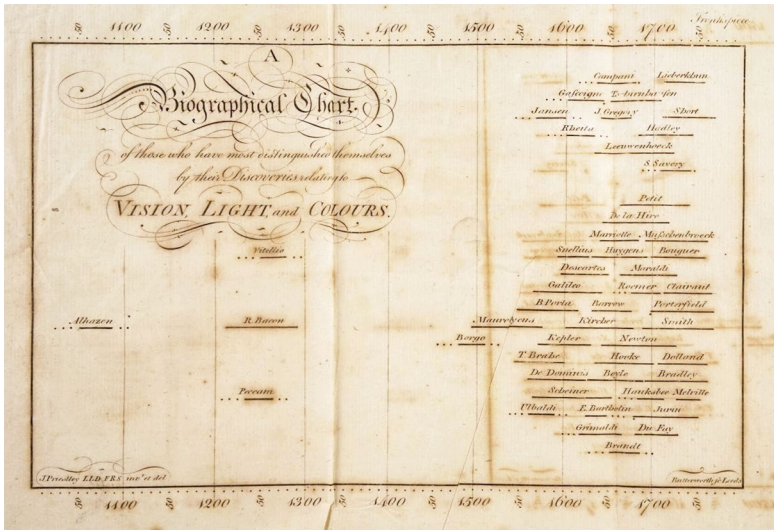 Frontispiece
50 1100 50 1200 50 1300 50 1400 50 1500 50 1600 50 1700 50
A
Biographical Chart.
of those who have most distinguished themselves
by their Discoveries relating to
VISION, LIGHT, and COLOURS.
Campani Lieberkhun
Gascoigne Tschirnhausen
Jansen J. Gregory Short
Rheita Hadley
Leeuwenhoeck
S. Savery
Petit
De la Hire
Mariotte Musschenbroeck
Vitellio Snellius Huygens Bouguer
Descartes Maraldi
Galileo Roemer Clairaut
B. Porta Barrow Porterfield
Alhazen R. Bacon Maurolycus Kircher Smith
Borgo Kepler Newton
T. Brahe Hooke Dolland
De Dominis Boyle Bradley
Peccam Scheiner Hauksbee Melville
Ubaldi E. Bartholin Jurin
Grimaldi Du Fay
Brandt
J. Priestley LLD. FRS. invt. et del Butterworth sc Leeds
50 1100 50 1200 50 1300 50 1400 50 1500 50 1600 50 1700 50